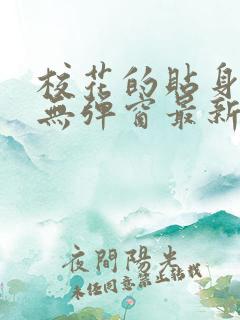 校花的貼身
無彈窗最新
夜間陽光
未经同意禁止转载